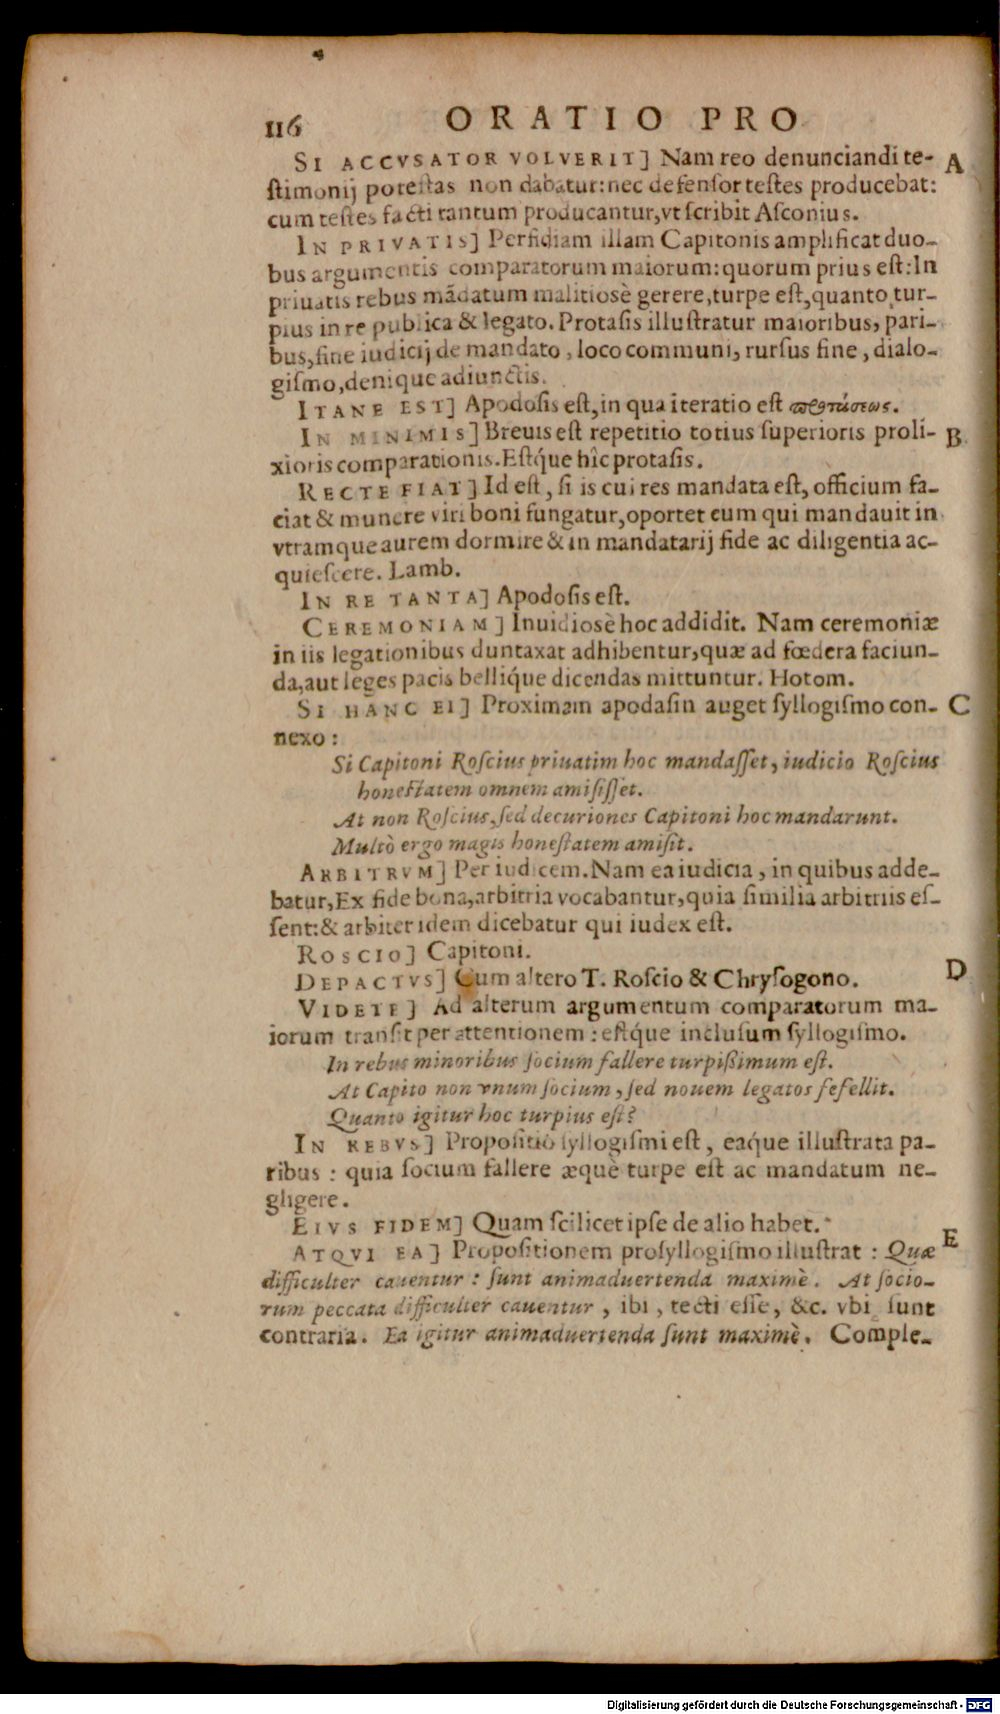 116 ORATIO PRO
SI ACCVSATOR VOLVERIT] Nam reo denunciandi te- A
ſtimonij poteſtas non dabatur: nec defenſor teſtes producebat:
cum teſtes facti tantum producantur, vt ſcribit Aſconius.
IN PRIVATIS] Perfidiam illam Capitonis amplificat duo-
bus argumentis comparatorum maiorum: quorum prius eſt: In
priuatis rebus mādatum malitiosè gerere, turpe eſt, quanto tur-
pius in re publica & legato. Protaſis illuſtratur maioribus, pari-
bus, fine iudicij de mandato, loco communi, rurſus fine, dialo-
giſmo, denique adiunctis.
ITANE EST] Apodoſis eſt, in qua iteratio eſt προτάσεως.
IN MINIMIS] Breuis eſt repetitio totius ſuperioris proli- B
xioris comparationis. Eſtq́ue hîc protaſis.
RECTE FIAT] Id eſt, ſi is cui res mandata eſt, officium fa-
ciat & munere viri boni fungatur, oportet eum qui mandauit in
vtramque aurem dormire & in mandatarij fide ac diligentia ac-
quieſcere. Lamb.
IN RE TANTA] Apodoſis eſt.
CEREMONIAM] Inuidiosè hoc addidit. Nam ceremoniæ
in iis legationibus duntaxat adhibentur, quæ ad fœdera faciun-
da, aut leges pacis bellíque dicendas mittuntur. Hotom.
SI HANC EI] Proximam apodaſin auget ſyllogiſmo con- C
nexo:
Si Capitoni Roſcius priuatim hoc mandaſſet, iudicio Roſcius
honeſtatem omnem amiſiſſet.
At non Roſcius, ſed decuriones Capitoni hoc mandarunt.
Multò ergo magis honeſtatem amiſit.
ARBITRVM] Per iudicem. Nam ea iudicia, in quibus adde-
batur, Ex fide bona, arbitria vocabantur, quia ſimilia arbitriis eſ-
ſent: & arbiter idem dicebatur qui iudex eſt.
ROSCIO] Capitoni.
DEPACTVS] Cum altero T. Roſcio & Chryſogono. D
VIDETE] Ad alterum argumentum comparatorum ma-
iorum tranſit per attentionem: eſtq́ue incluſum ſyllogiſmo.
In rebus minoribus ſocium fallere turpißimum eſt.
At Capito non vnum ſocium, ſed nouem legatos fefellit.
Quanto igitur hoc turpius eſt?
IN REBVS] Propoſitio ſyllogiſmi eſt, eaq́ue illuſtrata pa-
ribus: quia ſocium fallere æquè turpe eſt ac mandatum ne-
gligere.
EIVS FIDEM] Quam ſcilicet ipſe de alio habet.
ATQVI EA] Propoſitionem proſyllogiſmo illuſtrat: Quæ E
difficulter cauentur: ſunt animaduertenda maximè. At ſocio-
rum peccata difficulter cauentur, ibi, tecti eſſe, &c. vbi ſunt
contraria. Ea igitur animaduertenda ſunt maximè. Comple-
Digitalisierung gefördert durch die Deutsche Forschungsgemeinschaft - DFG